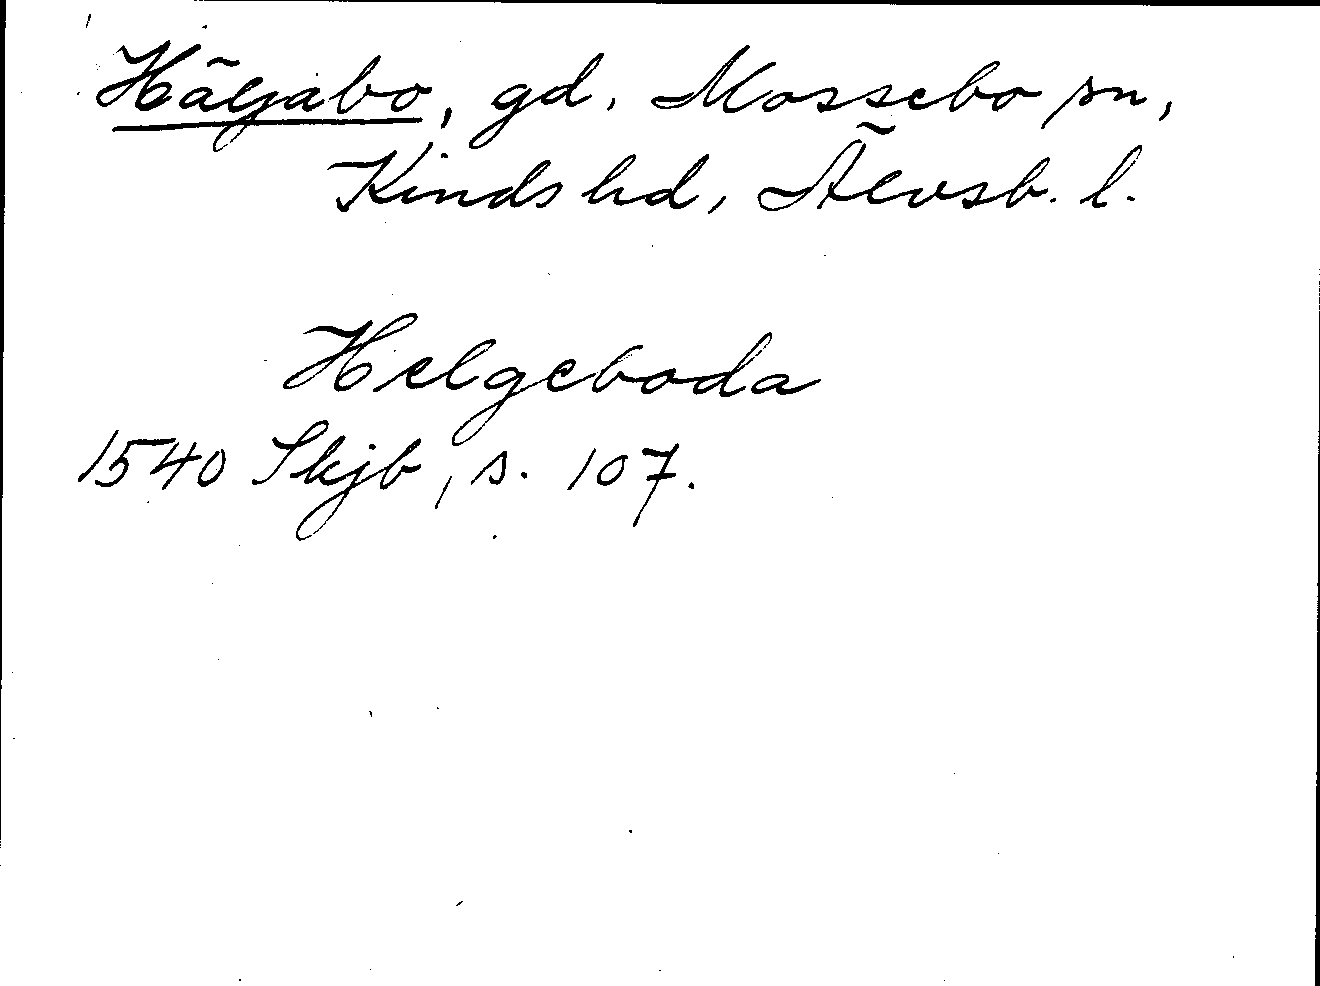 Hälgabo, gd. Mossebo sn,
Kinds hd, Älvsb. l.
Helgeboda
1540 Skjb, s. 107.